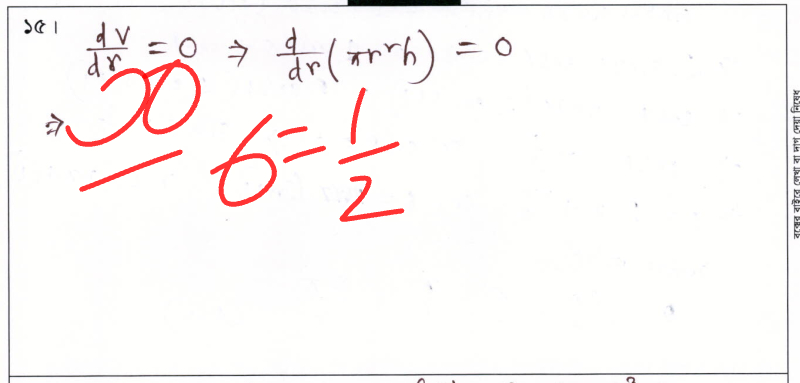 ১৫। dV/dr = 0 ⇒ d/dr (πr²h) = 0
⇒
6 = 1/2
বক্সের বাইরে লেখা বা দাগ দেয়া নিষেধ